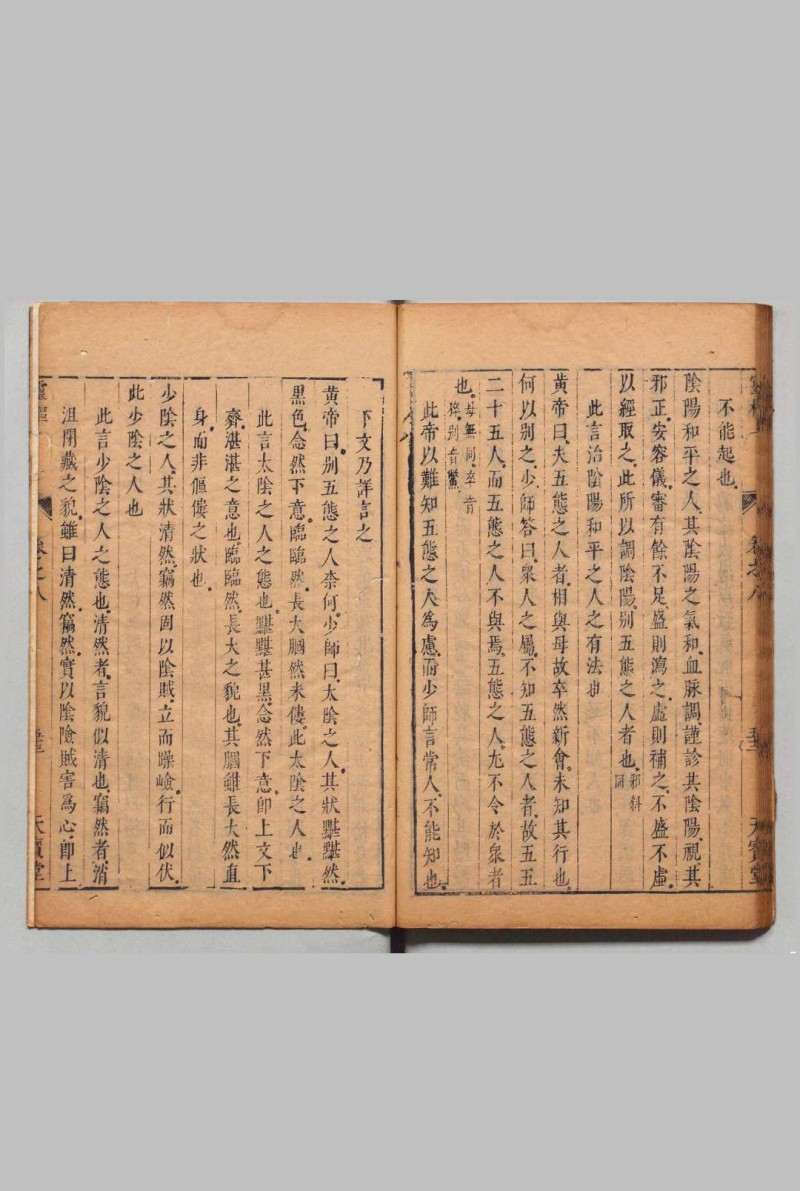 不能起也
陰陽和平之人其陰陽之氣和血脉調謹診其陰陽視其
邪正安容儀審有餘不足盛則瀉之虛則補之不盛不虛
以經取之此所以調陰陽別五態之人者也邪斜同
此言治陰陽和平之人之有法也
黃帝曰夫五態之人者相與毋故卒然新會未知其行也
何以別之少師答曰衆人之屬不知五態之人者故五五
二十五人而五態之人不與焉五態之人尤不令於衆者
也毋無同卒音猝別音鷩
此帝以難知五態之人為慮而少師言常人不能知也
下文乃詳言之
黃帝曰別五態之人奈何少師曰太陰之人其狀黮黮然
黑色念然下意臨臨然長大膕然未僂此太陰之人也
此言太陰之人之態也黮黮甚黑念然下意卽上文下
齊湛湛之意也臨臨然長大之貌也其膕雖長大然直
身而非傴僂之狀也
少陰之人其狀清然竊然固以陰賊立而躁嶮行而似伏
此少陰之人也
此言少陰之人之態也清然者言貌似清也竊然者消
沮閉藏之貌雖曰清然竊然實以陰險賊害爲心卽上
卷之八
天寶堂